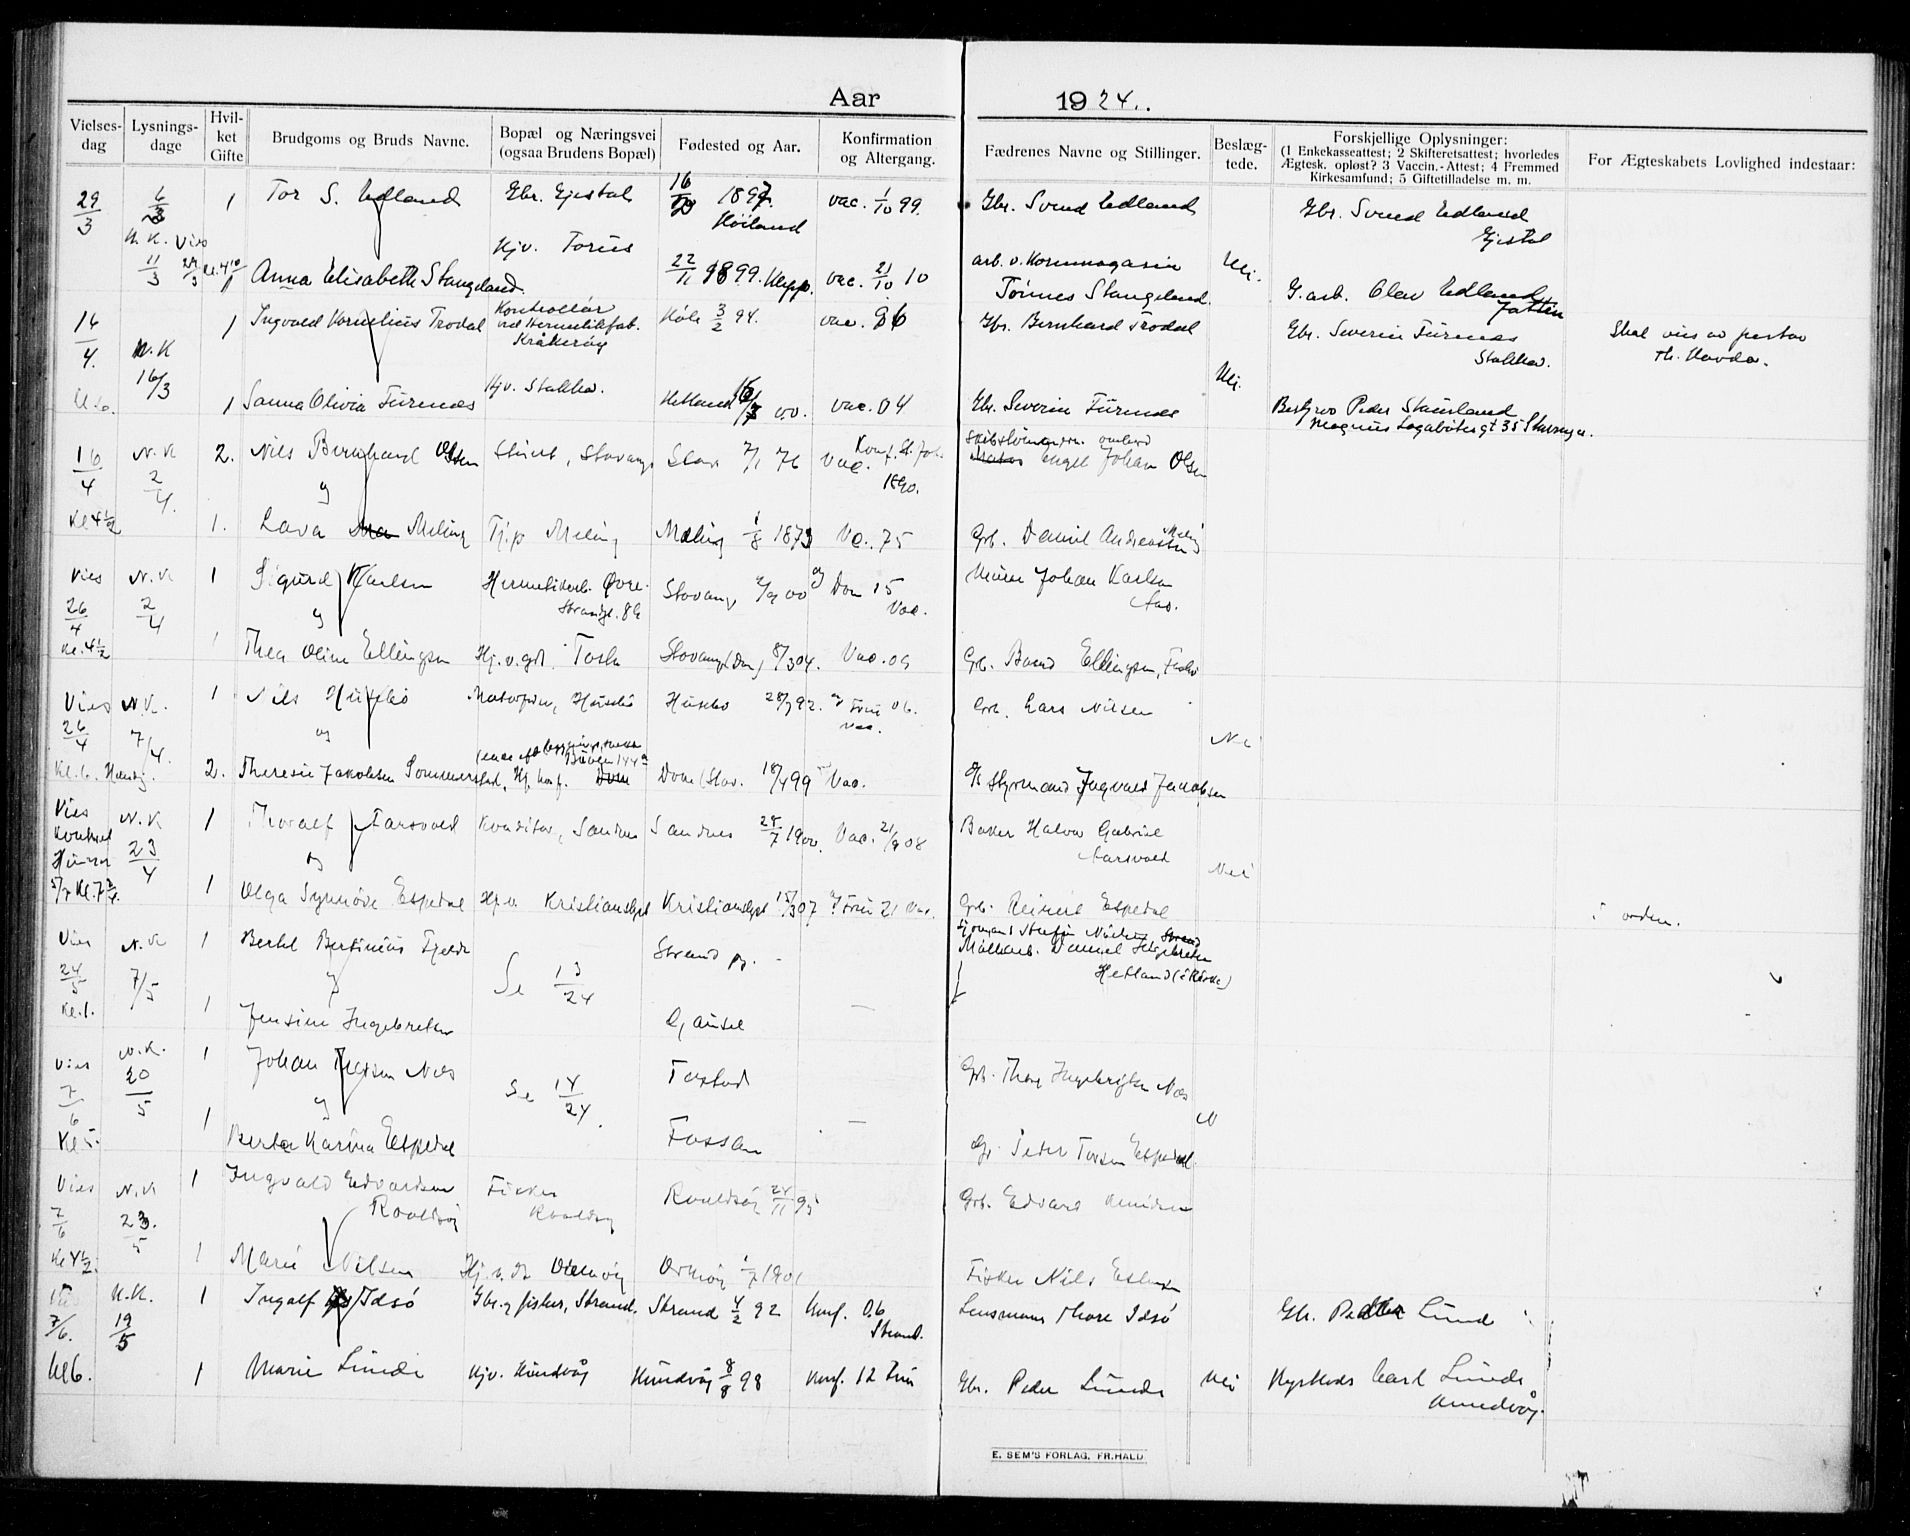 Aar 1924.
Vielses-dag
Lysnings-dage
Hvil-ket Gifte
Brudgoms og Bruds Navne.
Bopæl og Næringsvei (ogsaa Brudens Bopæl)
Fødested og Aar.
Konfirmation og Altergang.
Fædrenes Navne og Stillinger.
Beslæg-tede.
Forskjellige Oplysninger:
(1 Enkekasseattest; 2 Skifteretsattest; hvorledes
Ægtesk. opløst? 3 Vaccin.-Attest; 4 Fremmed
Kirkesamfund; 5 Giftetilladelse m. m.
For Ægteskabets Lovlighed indestaar:
29/3 6/3 1 Tor S. Edland Gbr. Gjestal 16/10 1897. Höiland vac. 1/10 99. Gbr. Svend Edland Gbr. Svend Edland
Gjestal
N. K. Vies
11/3 29/3 1 Anna Elisabeth Stangeland Hjv. Torus 22/11 1899. Klepp. vac. 21/10 10 arb. v. Kornmagasin Tönnes Stangeland. Nei. G. arb. Olav Edland
Jåtten
16/4. N. K 16/3 1 Ingvald Kornelius Trodal Kontrollör ved Hermetikfab. Kråkeröy Höle 3/2 94. vac. 96 Gbr. Bernhard Trodal Gbr. Severin Fürenes
Stokka. Skal vies av pastor
Th. Hovda.
Kl. 6. 1 Sanna Olivia Fürenes Hjv. Stokka. Hetland 16/7 00. vac. 04 Gbr. Severin Fürenes Nei. Bestyrer Peder Stausland
Magnus Lagabøtersgt 35 Stavanger.
16/4 N. K 2/4. 2. Nils Bernhard Olsen Stavanger Stav 7/1 76 Vac. Konf. St. Joh. 1890. Engel Johan Olsen
og
Kl 4½ 1. Lava Meling Tj.p Meling Meling 1/8 1873 Vc. 75 Grb. Daniel Andreassen Meling
Vies 26/4 N. K 2/4 1 Sigurd Karlsen Hermetikarb. Øvre Strandgt. 86 Stavang 2/9 00 og Dom 15 Vac. Murer Johan Karlsen
og
Kl. 4½ 1 Thea Oline Ellingsen Hj. v. gdl. Tasta Stavang (Dom) 8/3 04. Vac. 09 Grb. Baard Ellingsen,
Vies 26/4 N. K. 7/4. 1 Nils Husebö Matros, Husebö Husebö 28/7 92. Frue 06. vac. Grb. Lars Nilsen
og Nei
Kl. 6. 2. Theresie Jakobsen Sommerstad, Hj. Dom (Stav. 18/4 99 Vac. Styrmand Ingvald Jakobsen
Vies 5/7 Kl. 7¾. N. K 23/4 1 Thoralf Aarsvold Konditor, Sandnes Sandnes 28/7 1900. Vac. 21/9 08 Baker Halvor Gabriel
Aarsvold
og Nei
1 Olga Synnöve Espedal Hj. v. Kristianslyst Kristianslyst 15/3 07 Frue 21 Vac. Grb. Reinert Espedal i orden.
Vies 24/5 N. K 7/5 1 Bertel Bertinius Fjelde Se 13/24 Strand p. Daniel Ingebretsen
Hetland
og
Kl. 6. 1 Jensine Ingebretsen Gausel
Vies 7/6 N. K. 20/5 1 Johan Thorsen Næs Se 14/24. Tastad Grb. Thore Ingebrigtsen Næs
og N
Kl 5. 1 Berta Karina Espedal Fossan Gr. Peder Torsen Espedal.
Vies 7/6 N. K 23/5. 1 Ingvald Edvardsen
Roaldsøy Fisker Roaldsøy Roaldsøy 24/11 95 Grb. Edvard Knudsen
Kl 4½. 1 Marie Nilsen Hj. v. Ormøy 1/7 1901 Fisker Nils
7/6. N. K. 19/5 1 Ingolf Idsø Gbr. og fisker, Strand. Strand 4/2 92 Konf. 06 Strand. Lensmann Thore Idsø Gbr. Peder Lunde
Kl 6. 1 Marie Lunde Hjv. Hundvåg Hundvåg 8/8 98 Konf. 12 Frue Gbr. Peder Lunde Nei Carl Lunde
Hundvåg.
E. SEM'S FORLAG, FR.HALD